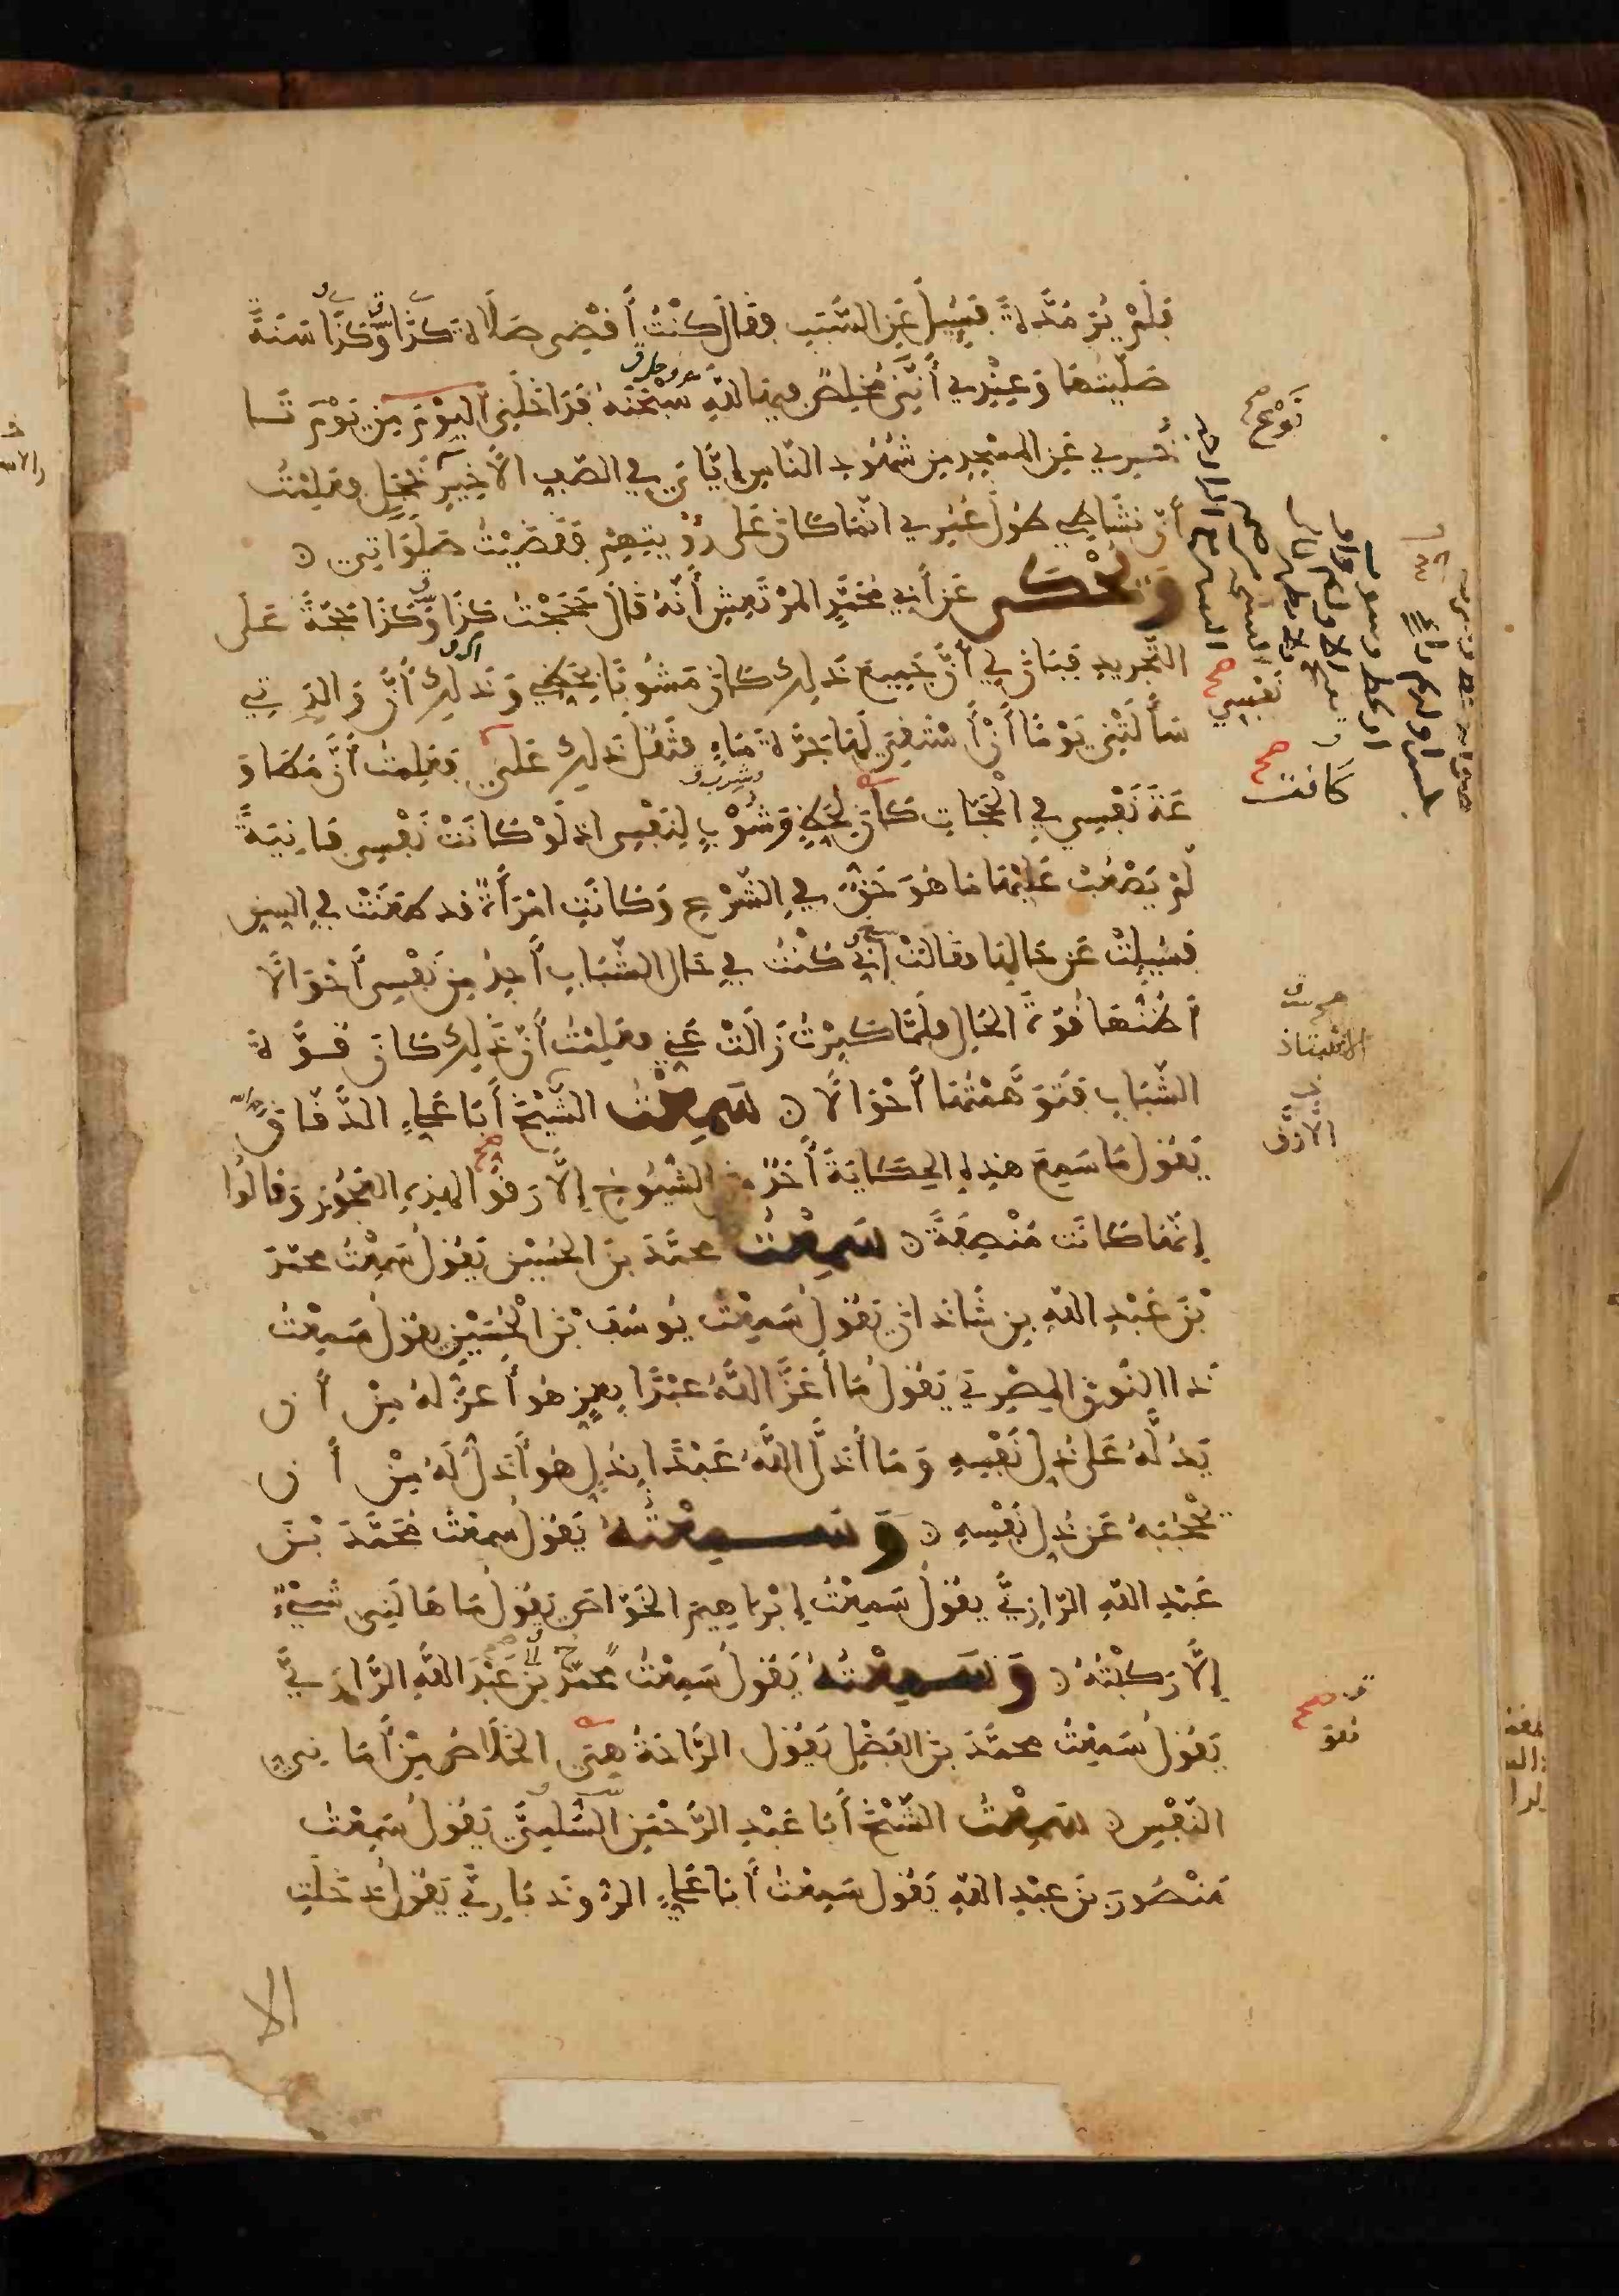 فَلَمْ يُرَ مُدَّةً فَسُئِلَ عَنِ السَّبَبِ فَقَالَ كُنْتُ أَقْضِي صَلَاةَ كَذَا وَكَذَا سَنَةً
صَلَّيْتُهَا وَعِنْدِي أَنِّي مُخْلِصٌ فِيهَا لِلَّهِ سُبْحَنَهُ فَدَاخَلَنِي الْيَوْمَ مِنْ يَوْمِ تَا
خُّرِي عَنِ الْمَسْجِدِ مِنْ شُهُودِ النَّاسِ إِيَّايَ فِي الصَّفِّ الْأَخِيرِ خَجَلٌ فَعَلِمْتُ
أَنَّ نَشَاطِي طُولَ عُمْرِي انَّمَا كَانَ عَلَى رُؤْيَتِهِمْ فَقَضَيْتُ صَلَوَاتِي
وَيُحْكَى عَنْ أَبِي مُحَمَّدٍ الْمُرْتَعِشِ أَنَّهُ قَالَ حَجَجْتُ كَذَا وَكَذَا حَجَّةً عَلَى
التَّجْرِيدِ فَبَانَ لِي أَنَّ جَمِيعَ ذَلِكَ كَانَ مَشُوبًا بِحَظِّي وَذَلِكَ أَنَّ وَالِدَتِي
سَأَلَتْنِي يَوْمًا أَنْ أَسْتَقِيَ لَهَا جَرَّةَ مَاءٍ فَثَقُلَ ذَلِكَ عَلَى فَعَلِمْتُ أَنَّ مُطَاوَ
عَةَ نَفْسِي فِي الْحَجَّاتِ كَانَ لِحَظٍّ وَشَوْبٍ لِنَفْسِي اذ لَوْ كَانَتْ نَفْسِي فَانِيَةً
لَمْ يَصْعُبْ عَلَيْهَا مَا هُوَ حَقٌّ فِي الشَّرْعِ وَكَانَتِ امْرَأَةٌ قد طَعَنَتْ فِي السِّنِ
فَسُئِلَتْ عَنْ حَالِهَا فَقَالَتْ إِنِّي كُنْتُ فِي حَالِ الشَّبَابِ أَجِدُ مِنْ نَفْسِي أَحْوَالًا
أَظُنُّهَا قُوَّةَ الْحَالِ فَلَمَّا كَبِرْتُ زَالَتْ عَنِّي فَعَلِمْتُ أَنَّ ذَلِكَ كَانَ قُوَّةَ
الشَّبَابِ فَتَوَهَّمْتُهَا أَحْوَالًا سَمِعْتُ الشَّيْخَ أَبَا عَلِيٍّ الدَّقَّاقَ
يَقُولُ مَا سَمِعَ هَذِهِ الْحِكَايَةَ أَحَدٌ مِنَ الشُّيُوخِ إِلَّا رَقُّوا لِهَذِهِ الْعَجُوزِ وَقَالُوا
إِنَّهَا كَانَتْ مُنْصِفَةً سَمِعْتُ محمَّدَ بْنَ الْحُسَيْنِ يَقُولُ سَمِعْتُ محمَّدَ
بْنَ عَبْدِ اللَّهِ بْنِ شَاذَانَ يَقُولُ سَمِعْتُ يُوسُفَ بْنَ الْحُسَيْنِ يَقُولُ سَمِعْتُ
ذَا النُّونِ الْمِصْرِيَّ يَقُولُ مَا أَعَزَّ اللَّهُ عَبْدًا بِعِزٍّ هُوَ أَعَزُّ لَهُ مِنْ أَن
يَدُلَّهُ عَلَى ذُلِّ نَفْسِهِ وَمَا أَذَلَّ اللَّهُ عَبْدًا بِذُلٍّ هُوَ أَذَلُّ لَهُ مِنْ أَن
يَحْجُبَهُ عَنْ ذُلِّ نَفْسِهِ وَسَمِعْتُهُ يَقُولُ سَمِعْتُ مُحَمَّدَ بْنَ
عَبْدِ اللَّهِ الرَّازِيَّ يَقُولُ سَمِعْتُ إِبْرَاهِيمَ الْخَوَّاصَ يَقُولُ مَا هَالَنِي شَيْءٌ
إِلَّا رَكِبْتُهُ وَسَمِعْتُهُ يَقُولُ سَمِعْتُ محمَّدَ بْنَ عَبْدَ اللَّهِ الرَّازِيَّ
يَقُولُ سَمِعْتُ محمَّدَ بْنَ الْفَضْلِ يَقُولُ الرَّاحَةُ هِيَ الْخَلَاصُ مِنْ أَمَانِيِّ
النَّفْسِ سَمِعْتُ الشَّيْخَ أَبَا عَبْدِ الرَّحْمَنِ السُّلَمِيَّ يَقُولُ سَمِعْتُ
مَنْصُورَ بْنَ عَبْدِ اللَّهِ يَقُولُ سَمِعْتُ أَبَا عَلِيٍّ الرُّوذَبَارِيَّ يَقُولُ دَخَلَتِ
نَوْعُ صح
نَفْسِي صح
كَانَتْ صح
الأستاذ
الا